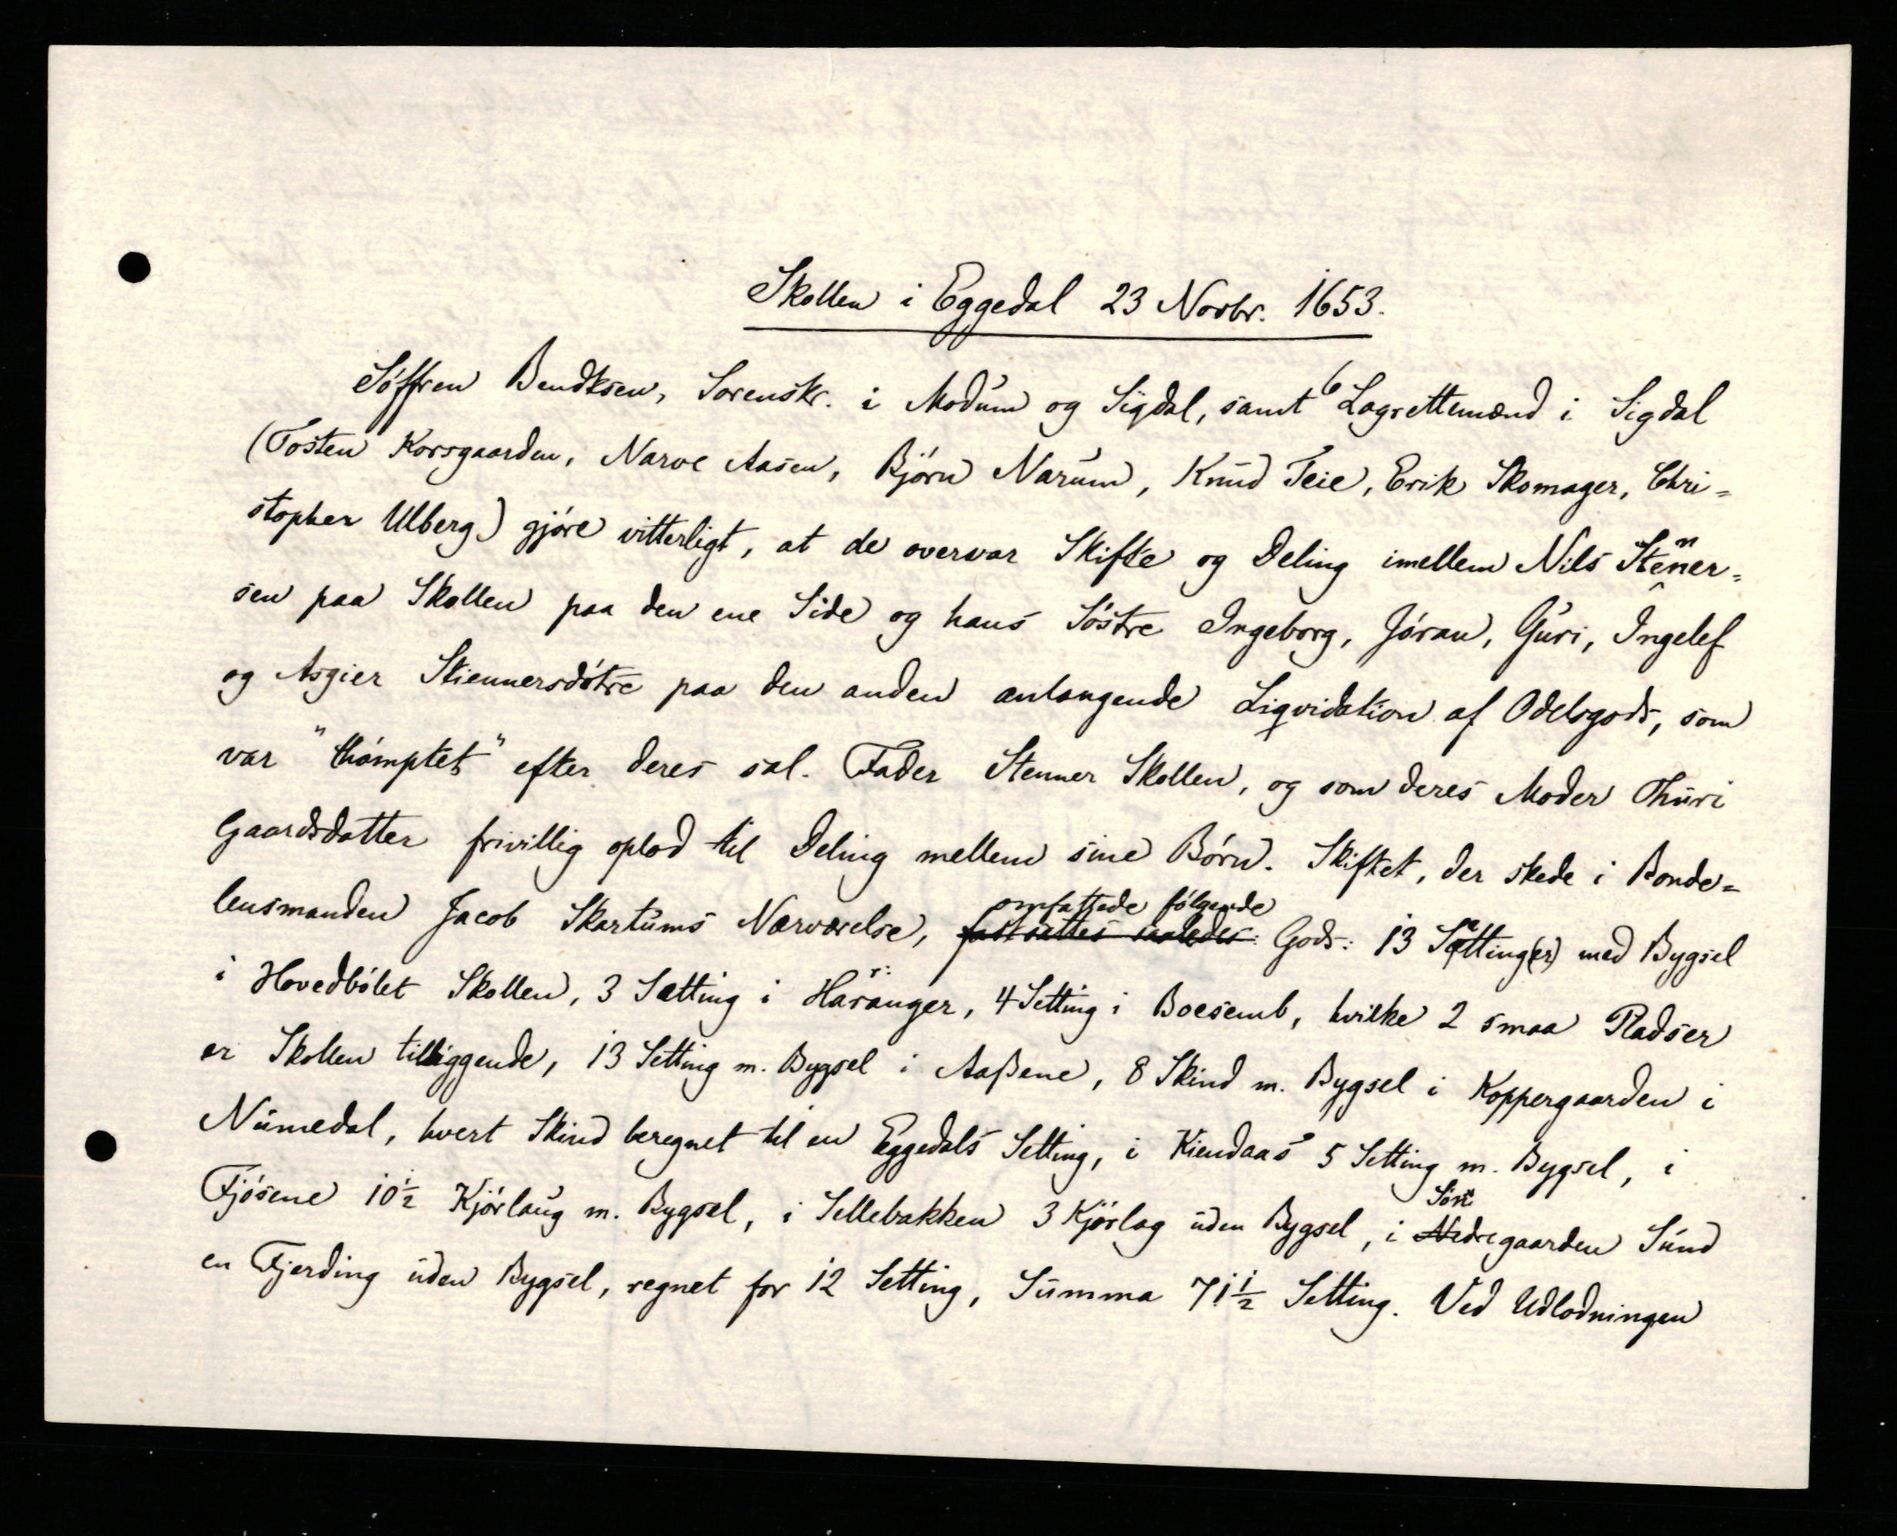 Skollen i Eggedal 23 Novbr. 1653.
Söffren Bendksen, Sorenskr. i Modum og Sigdal, samt 6 Lagrettemænd i Sigdal
(Tosten Korsgaarden, Narve Aasen, Björn Narum, Knud Teie, Erik Skomager, Chri=
stopher Ulberg) gjöre vitterligt, at de overvar Skifte og Deling imellem Nils Stenner=
sen paa Skollen paa den ene Side og hans Söstre Ingeborg, Jöran, Guri, Ingelef
og Asgier Stiennersdötre paa den anden anlangende Liqvidation af Odelsgods, som
var "thömptet" efter deres sal. Fader Stenner Skollen, og som deres Moder Thuri
Gaardsdatter frivillig oplod til Deling mellem sine Börn. Skiftet, der skede i Bonde=
lensmanden Jacob Skartums Nærværelse, fastsattes saaledes: omfattede fölgende Gods: 13 Setting(er) med Bygsel
i Hovedbölet Skollen, 3 Sætting i Haranger, 4 Setting i Boesemb, hvilke 2 smaa Pladser
er Skollen tilliggende, 13 Setting m. Bygsel i Aaßene, 8 Skind m. Bygsel i Koppergaarden i
Numedal, hvert Skind beregnet til en Eggedals Setting, i Kiendaas 5 Setting m. Bygsel, i
Fjösene 10½ Kjörlaug m. Bygsel, i Sellebakken 3 Kjörlag uden Bygsel, i Nedre Söre gaarden Sund
en Fjerding uden Bygsel, regnet for 12 Setting, Summa 71½ Setting. Ved Udlodningen